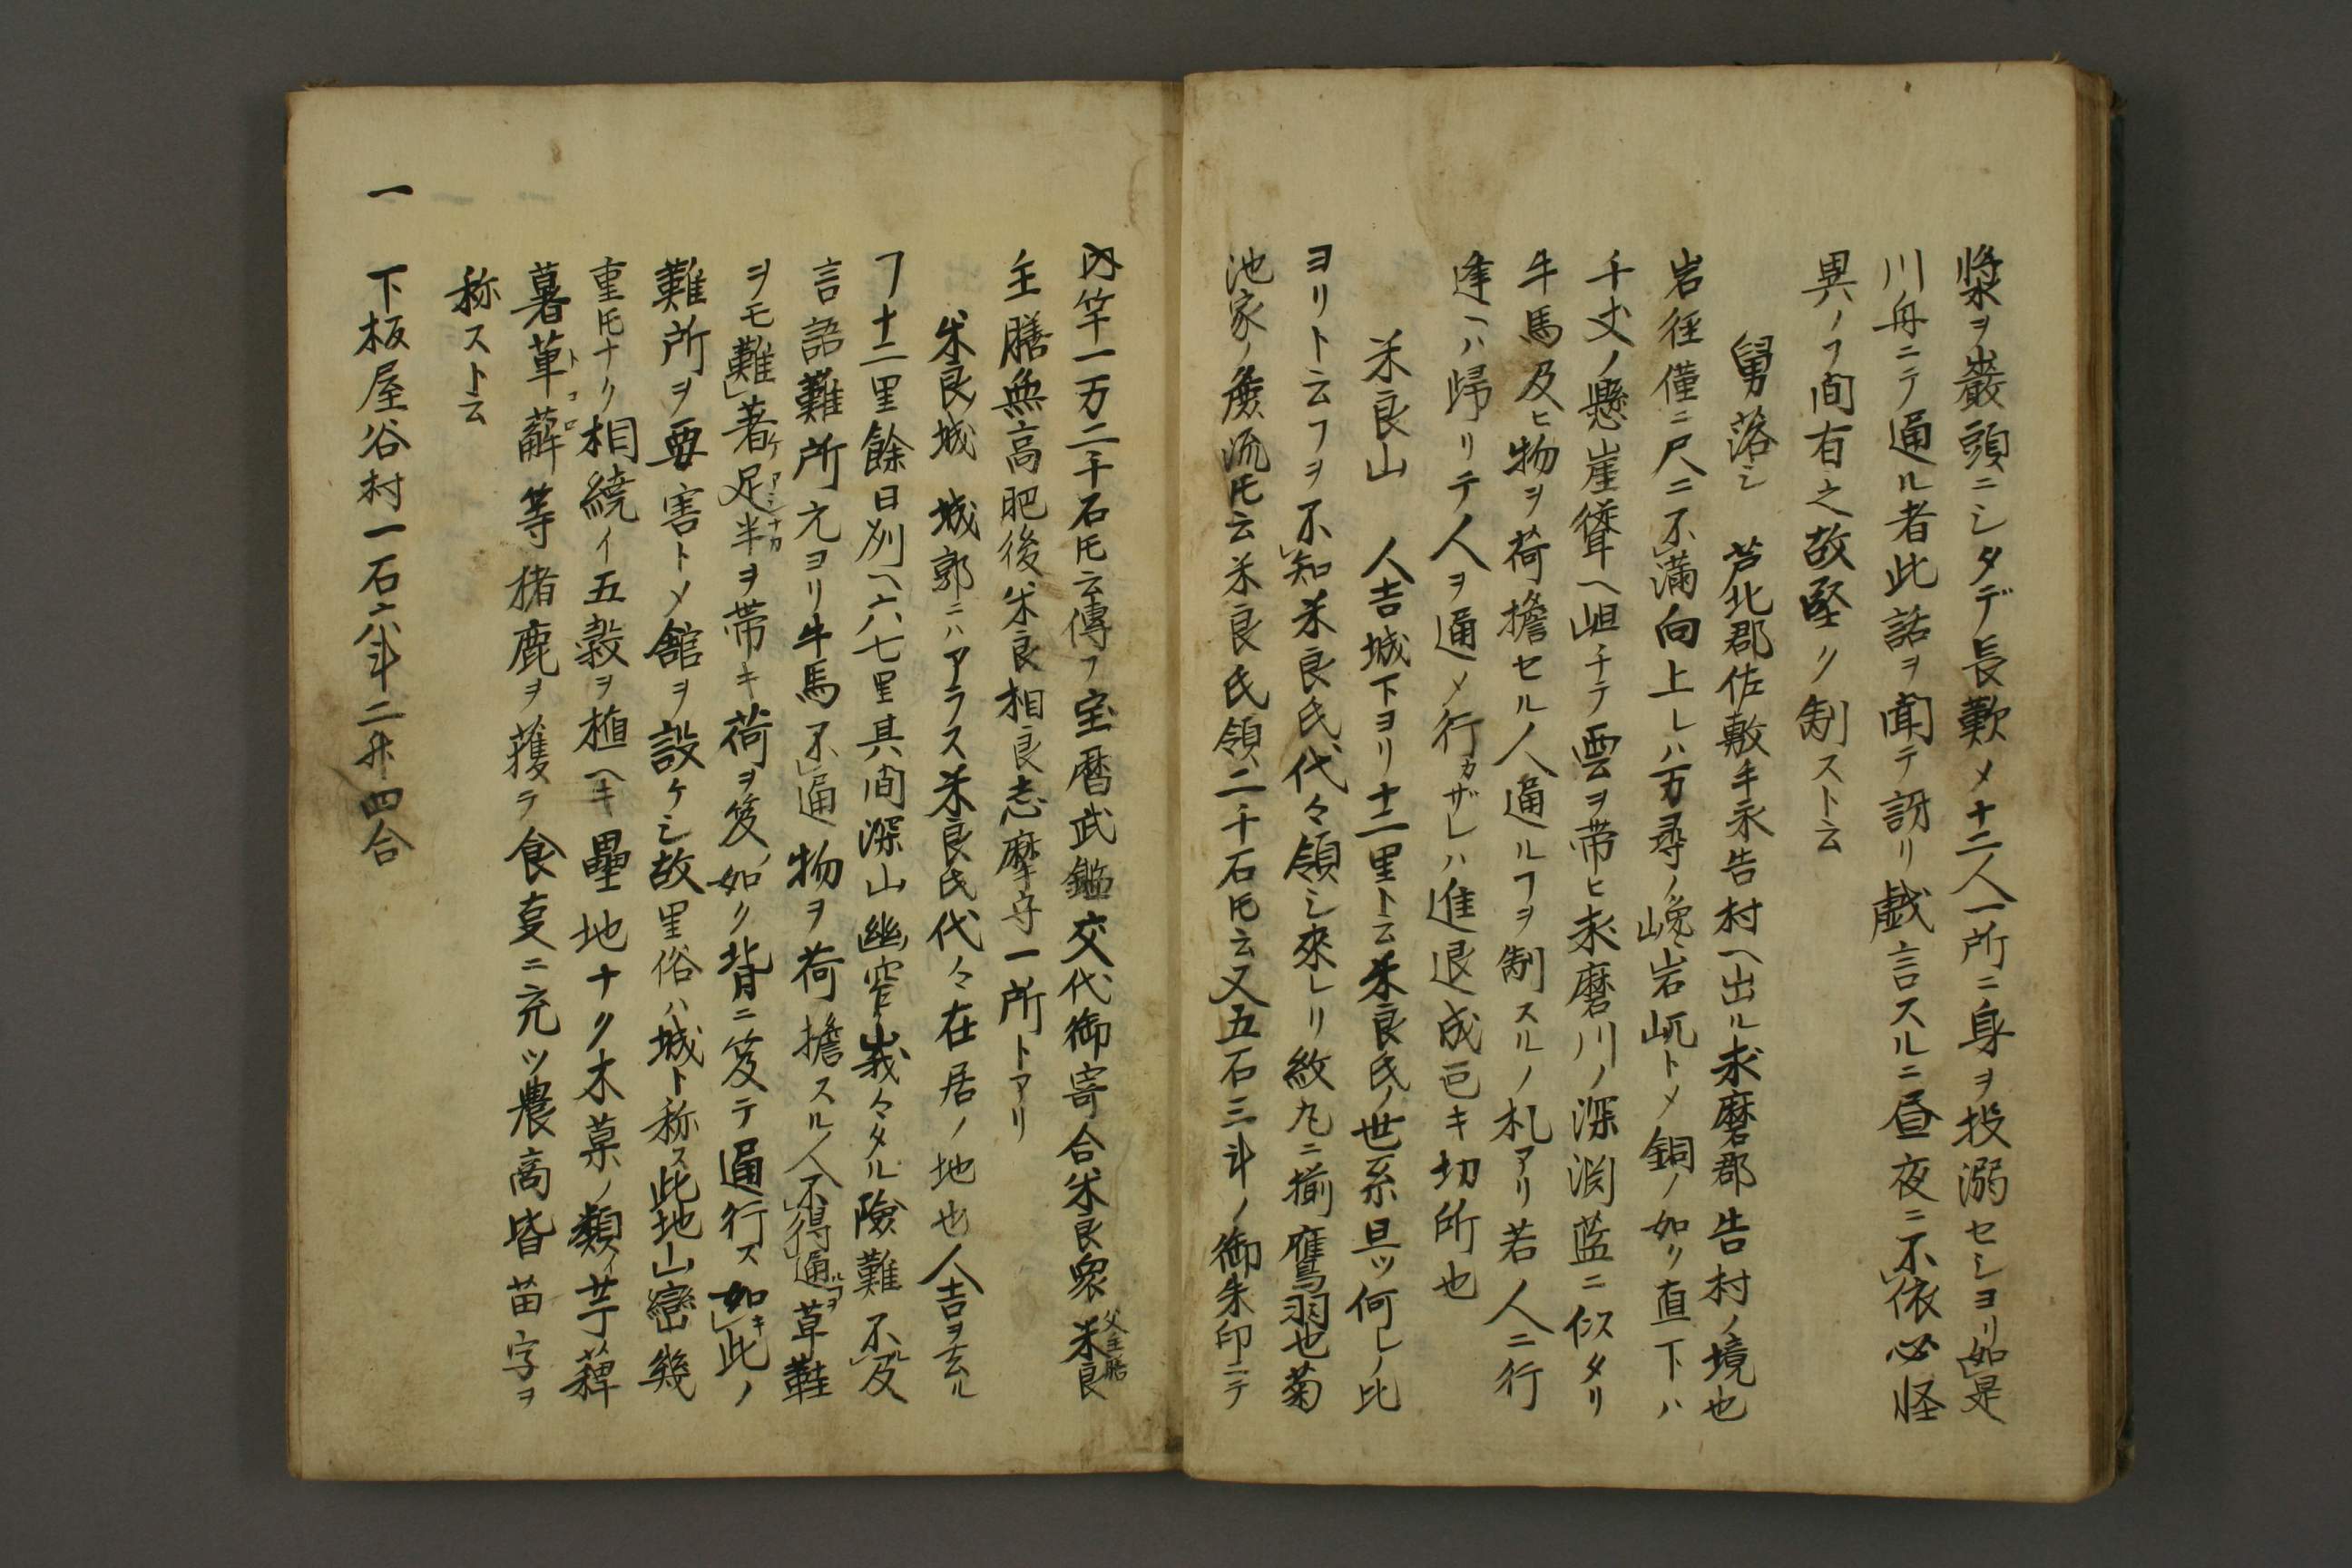 槳ヲ巌頭ニシタデ長歎メ十二人一所ニ身ヲ投溺セシヨリ如是
川舟ニテ通ル者此話ヲ聞テ訝リ戯言スルニ昼夜ニ不依必怪
異ノヿ間有之故堅ク制スト云
舅落シ 芦北郡佐敷キ永告村ヘ出ル求磨郡告村ノ境也
岩径僅ニ尺ニ不満向上レハ万尋ノ巉岩屼トメ銅ノ如リ直下ハ
千丈ノ懸崖聳ヘ峙チテ雲ヲ帯ヒ求磨川ノ深渕藍ニ似スタリ
牛馬及ヒ物ヲ荷擔セル人通ルヿヲ制スルノ札アリ若人ニ行
逢ヘハ帰リテ人ヲ通メ行カザレハ進退成皀キ切所也
米良山 人吉城下ヨリ十二里ト云米良氏ノ世系旦ツ何レノ比
ヨリト云フヿヲ不知米良氏代々領シ來レリ紋丸ニ揃鷹羽也菊
池家ノ庶流氏云米良氏領二千石氏云又五石三斗ノ御朱印ニテ
内竿一万二千石氏云傳フ宝暦武鑑交代御寄合米良衆 父主膳 米良
主膳無高肥後米良相良志摩守一所トアリ
米良城 城郭ニハアラス米良氏代々在居ノ地也人吉ヲ去ル
ヿ十二里餘日州ヘ六七里其間深山幽窄峩々タル險難不及ル
言語難所元ヨリ牛馬不通物ヲ荷擔スル人不得通ルヿヲ草鞋
ヲモ難著ケ足半アシナカヲ帯キ荷ヲ笈ノ如ク背ニ笈テ通行ス如キ此ノ
難所ヲ要害トメ舘ヲ設ケシ故里俗ハ城ト称ス此地山巒幾
重氏ナク相繞イ五穀ヲ植ヘキ壘地ナク木菓ノ類イ芋稗
薯萆薢トコロ等猪鹿ヲ獲テ食㐰ニ充ツ農商皆苗字ヲ
称スト云
一 下板屋谷村一石六斗二升四合